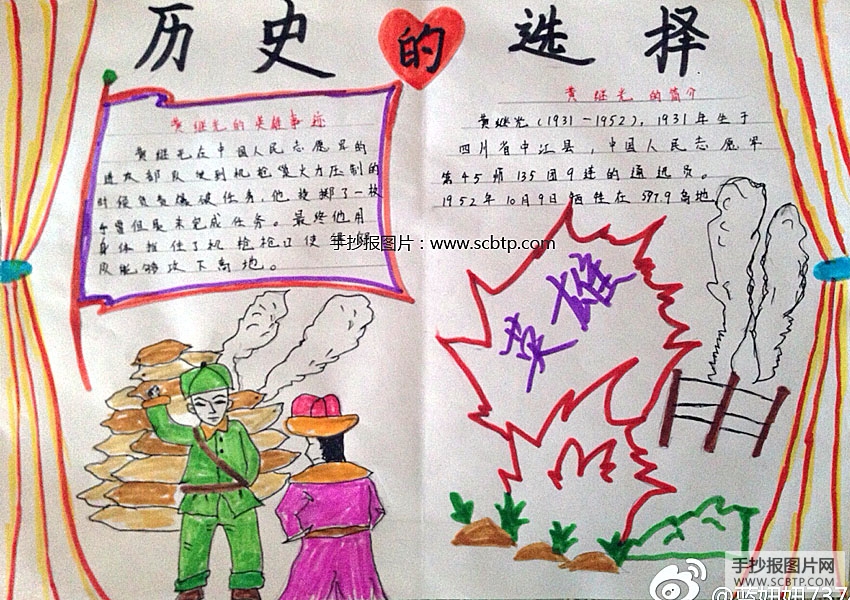 历史的选择
黄继光的英雄事迹
黄继光在中国人民志愿军的
进攻部队受到机枪火力压制的
时候负责爆破任务,他投掷了一枚
手雷但是未完成任务。最终他用
身体挡住了机枪枪口使
队能够攻下高地。
手抄报图片:www.scbtp.com
黄继光的简介
黄继光(1931-1952),1931年生于
四川省中江县,中国人民志愿军
第45师135团9连的通迅员。
1952年10月9日牺牲在597.9高地
英雄
手抄报图片网
WWW.SCBTP.COM